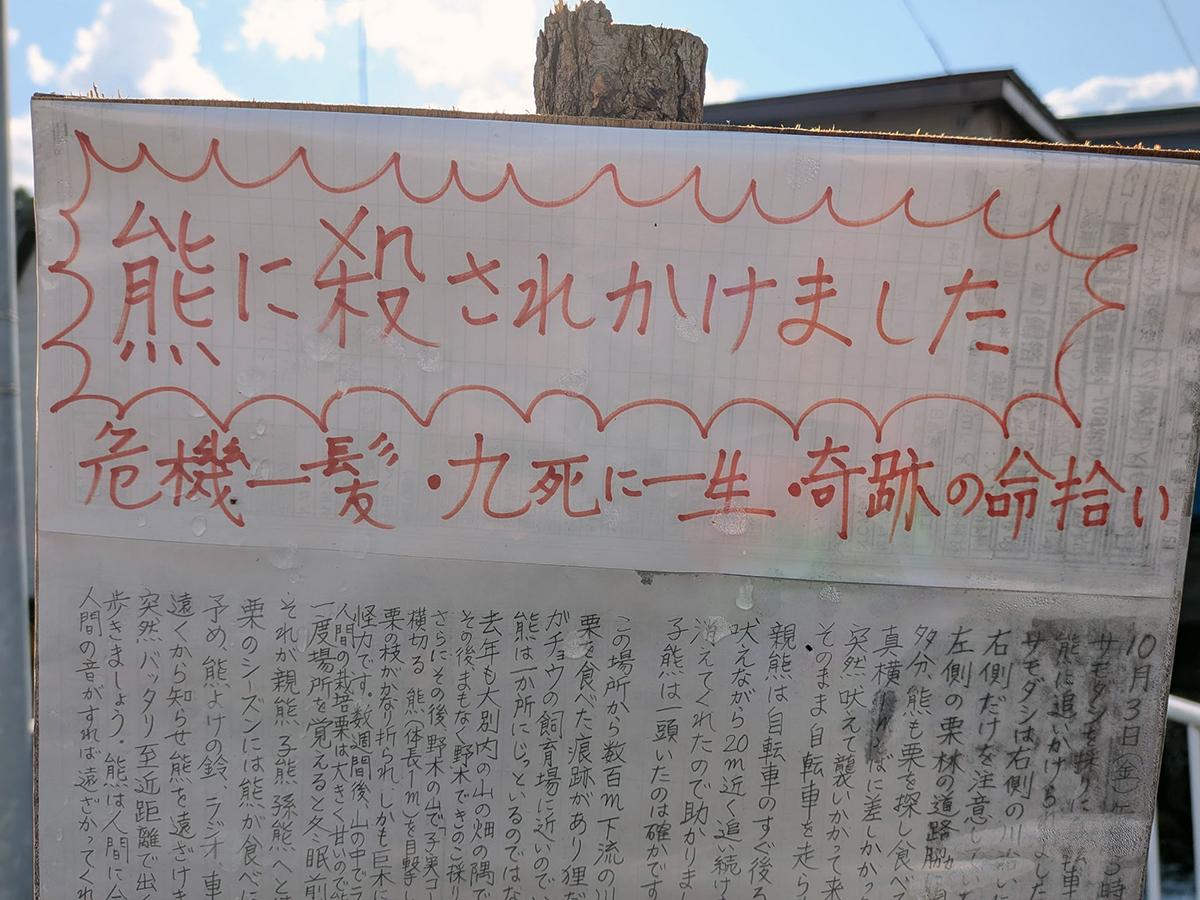 熊に殺されかけました
危機一髪・九死に一生・奇跡の命拾い
10月3日(金)午 5時
サモダシを採りに 転車
熊に追いかけられました
サモダシは右側の川沿いに
右側だけを注意し
左側の栗林の道路脇
多分、熊も栗を探し食べ
真横 ばに差しかかっ
突然吠えて襲いかかって来
そのまま自転車を走ら
親熊は自転車のすぐ後ろ
吠えながら20m近く追い続け
消えてくれたので助かりま
子熊は一頭いたのは確かです
この場所から数百m下流の川
栗を食べた痕跡があり狸だ
がチョウの飼育場に近いので
熊は一か所にじっといるのではな
去年も大別内の山の畑の隅で
その後まもなく野木できのこ採り
さらにその後野木の山で「子実コー
横切る熊(体長1m)を目撃し
栗の枝がかなり折られ、しかも巨木に
怪力です。数週間後、山の中でラ
人間の栽培栗は大きく甘いので熊
一度場所を覚えると冬眠前
それが親熊、子熊孫熊へと
栗のシーズンには熊が食べに
予め、熊よけの鈴、ラジオ、車
遠くから知らせ熊を遠ざけ
突然バッタリ至近距離で出く
歩きましょう。熊は人間に会
人間の音がすれば遠ざかってくれ